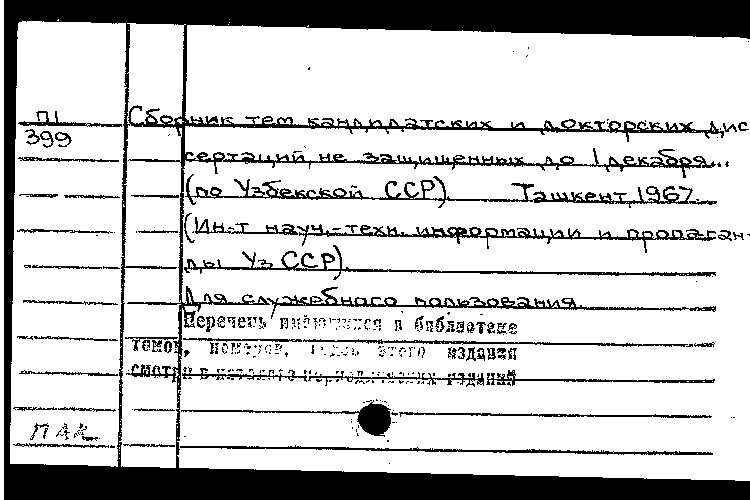 П1
399
Сборник тем кандидатских и докторских дис
сертаций, не защищенных до 1 декабря...
(по Узбекской ССР). Ташкент, 1967.
(Ин-т науч.-техн. информации и пропаган-
ды Уз ССР).
Для служебного пользования.
Перечень имеющихся в библиотеке
томов, номеров, годов этого издания
смотри в каталоге периодических изданий
ПАК